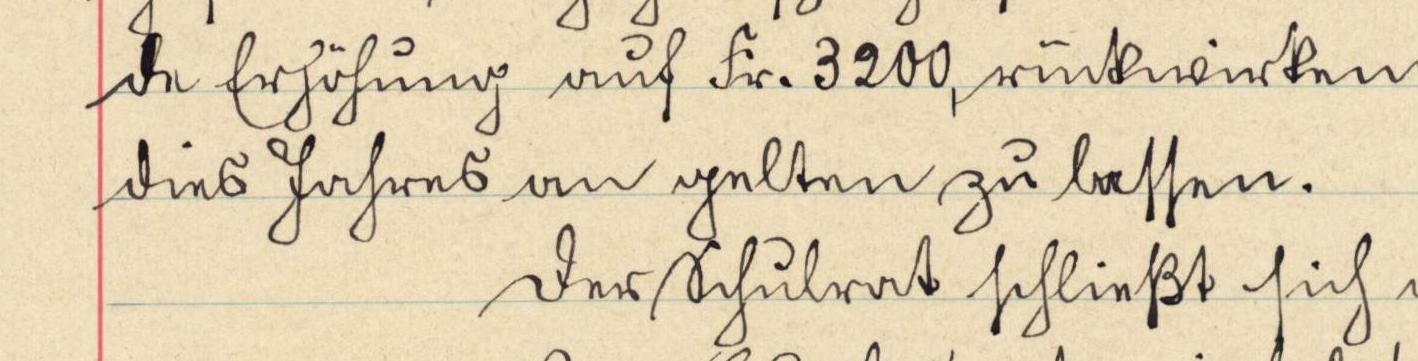 de Erhöhung auf Fr. 3200, rückwirken
dies Jahres an gelten zu lassen.
Der Schulrat schließt sich